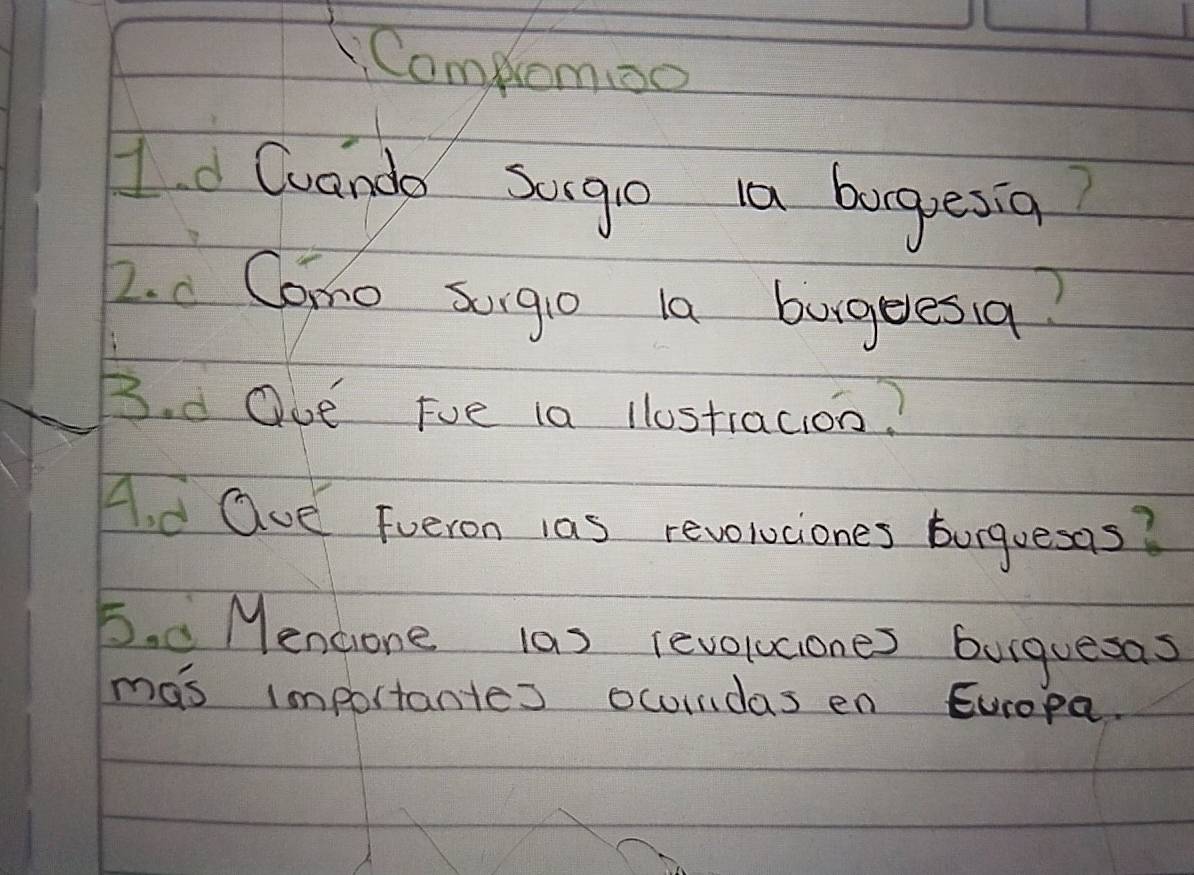 Compromiso
1.¿Cuándo surgio la burguesia?
2.¿Cómo surgio la burguesia?
3.¿Qué Fue la ilustracion?
4.¿Qué Fueron las revoluciones burguesas?
5.¿Mencione las revoluciones burguesas
más importantes ocurridas en Europa.